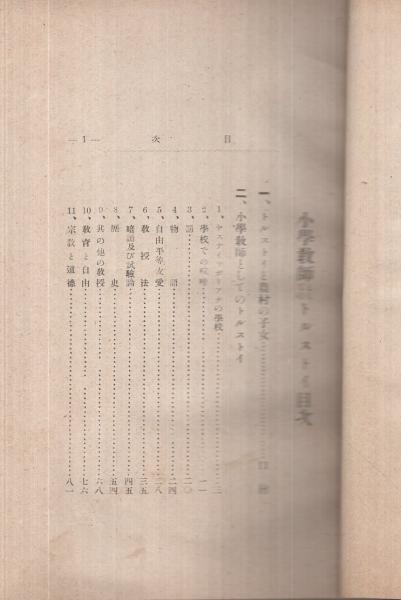 小學教師としてのトルストイ目次
一、トルストイと農村の子女
二、小學教師としてのトルストイ
1、ヤスナイヤ・ポリアナの學校……三
2、學校での……一一
3、語……二〇
4、物語……二四
5、自由平等友愛……二八
6、教授法……三五
7、暗誦及び試驗論……四五
8、歷史……五四
9、其の他の教授……六八
10、教育と自由……七六
11、宗教と道德……八一
目次
—1—